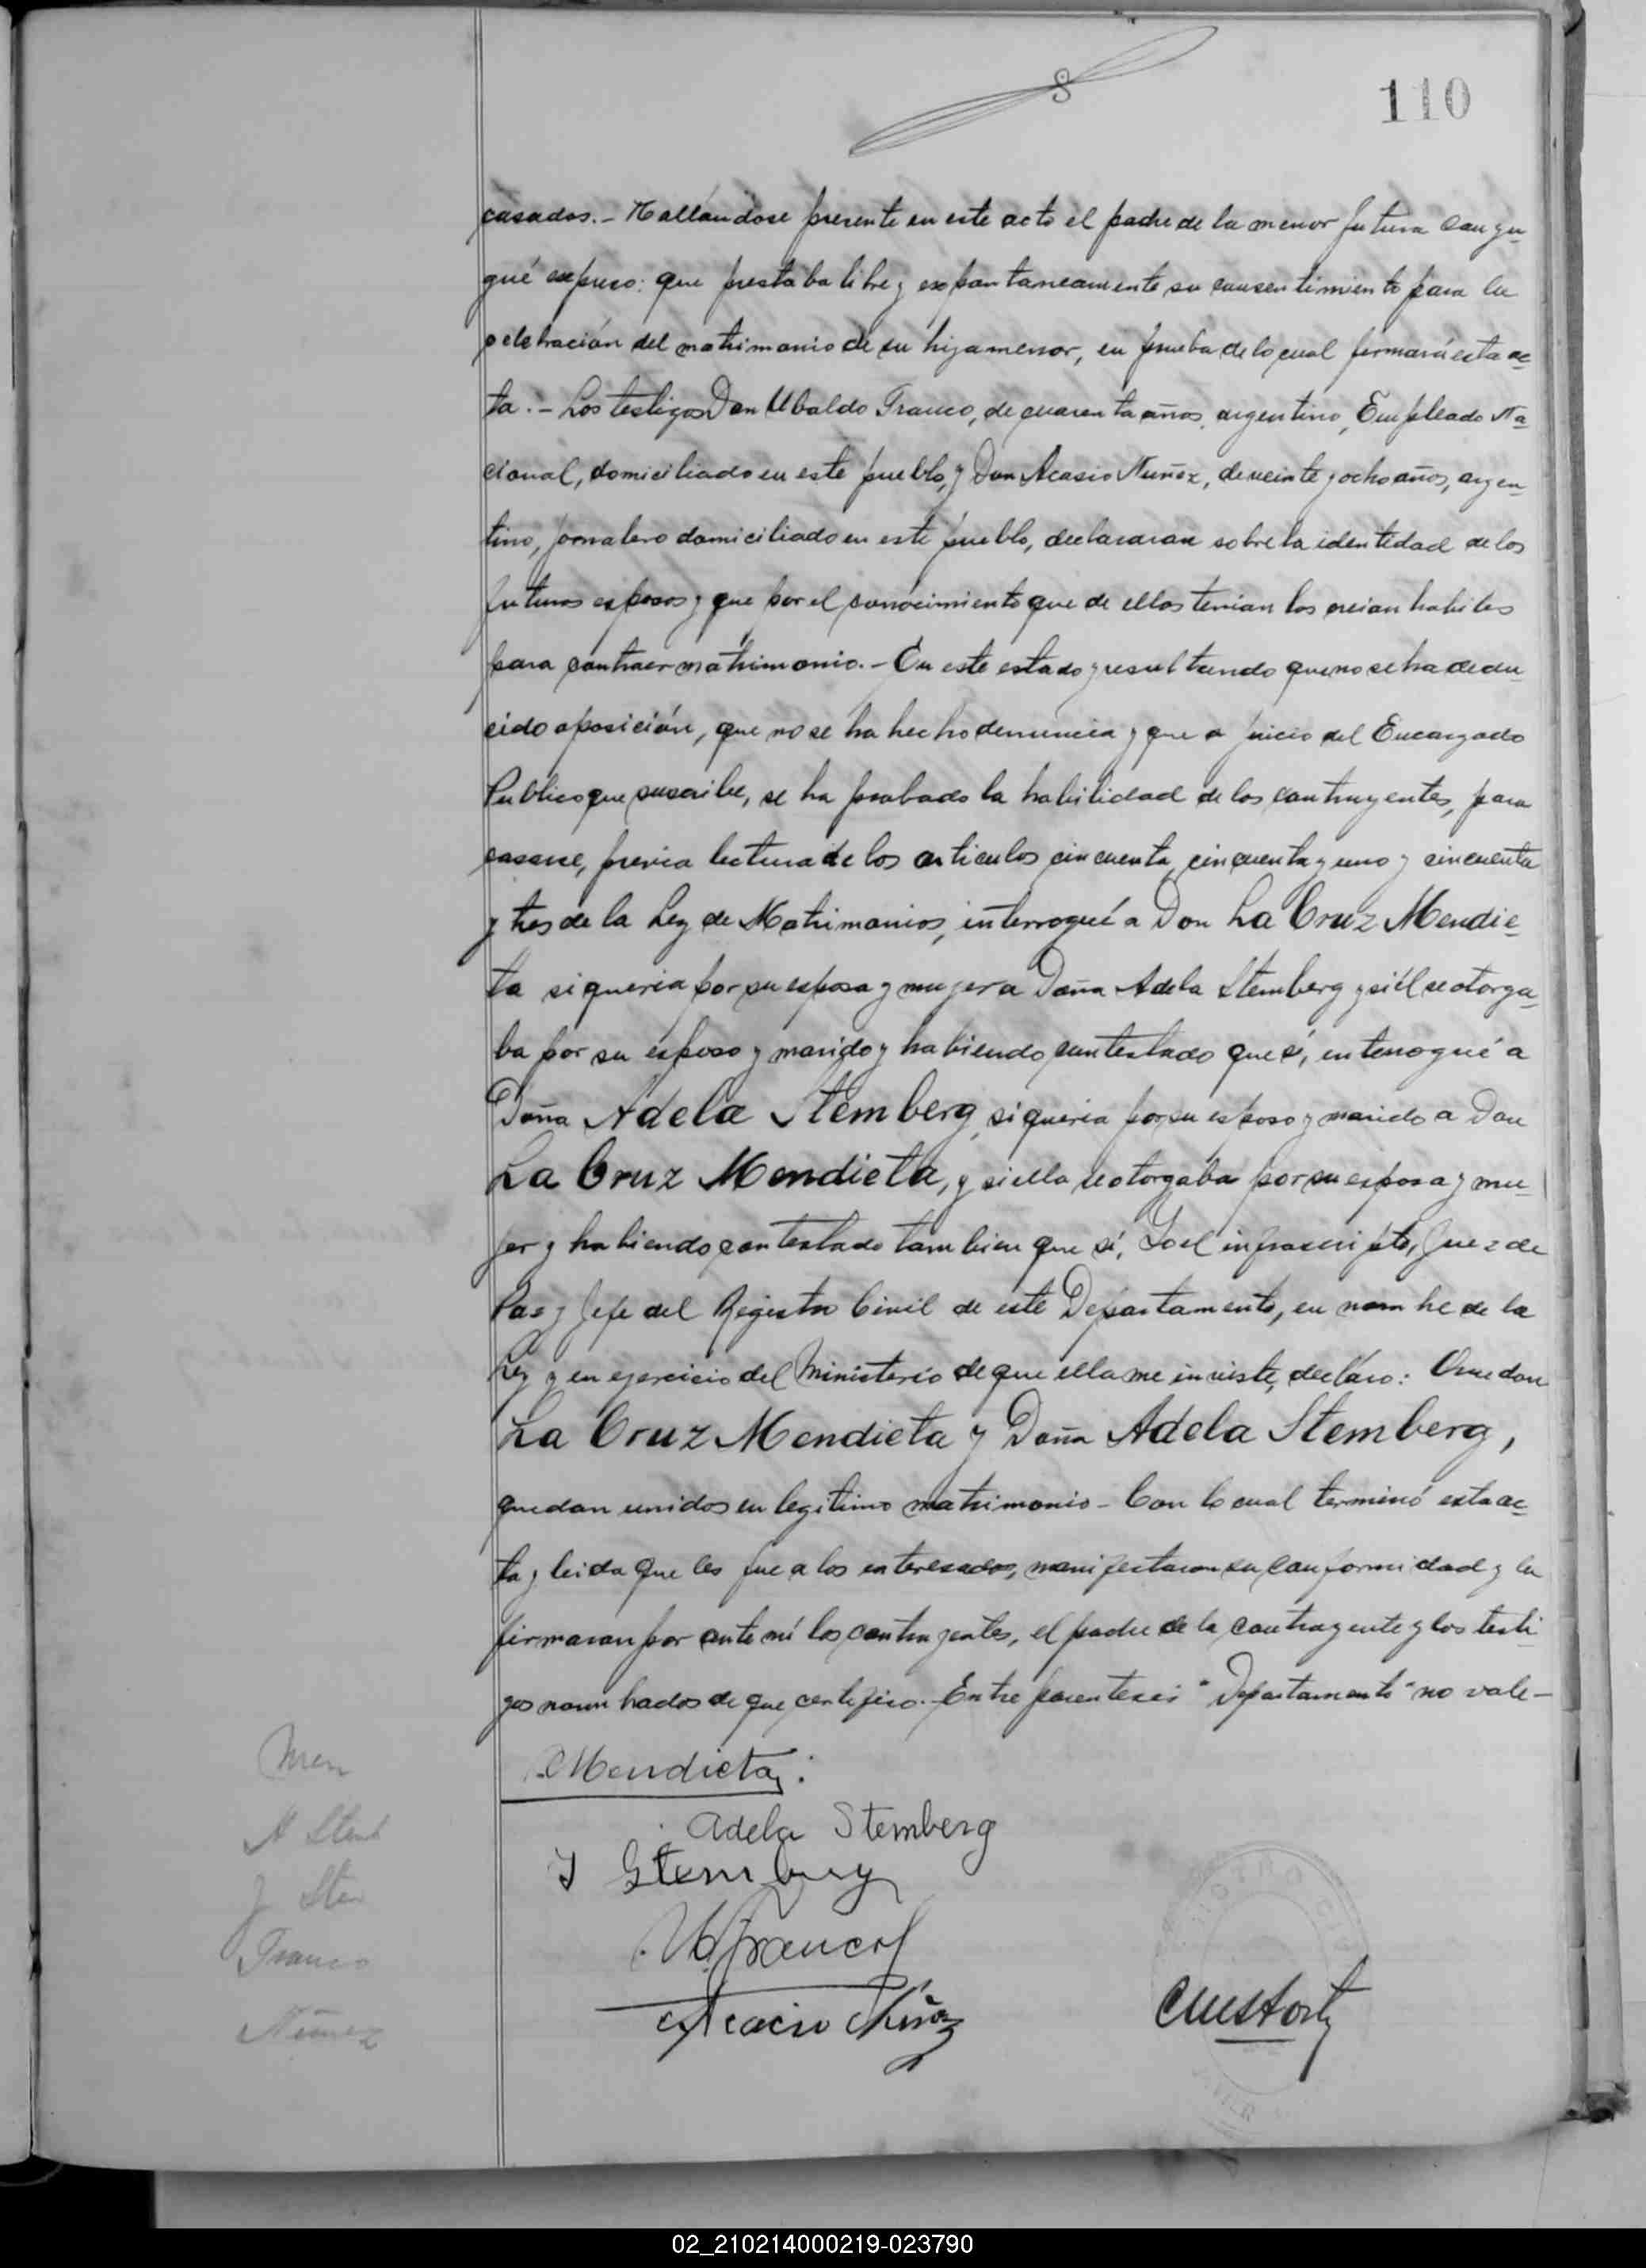 110
casados.- Hallándose presente en este acto el padre de la menor futura conyu-
gué expuso: que prestaba libre y expontaneamente su consentimiento para la
celebración del matrimonio de su hija menor, en prueba de lo cual firmará esta ac-
ta.- Los testigos Don Ubaldo Franco, de cuarenta años, argentino, Empleado Na-
cional, domiciliado en este pueblo, y Don Acasio Nuñez, de veinte y ocho años, argen-
tino, jornalero domiciliado en este pueblo, declararan sobre la identidad de los
futuros esposos y que por el conocimiento que de ellos tenian los creian habiles
para contraer matrimonio.- En este estado y resultando que no se ha dedu-
cido oposición, que no se ha hecho denuncia y que a juicio del Encargado
Publico que suscribe, se ha probado la habilidad de los contrayentes, para
casarse, previa lectura de los articulos cincuenta, cincuenta y uno y cincuenta
y tres de la Ley de Matrimonios, interrogué a Don La Cruz Mendie-
ta si queria por su esposa y mujer a Doña Adela Stemberg y si él se otorga-
ba por su esposo y marido y habiendo contestado que sí, interrogué a
Doña Adela Stemberg, si queria por su esposo y marido a Don
La Cruz Mendieta, y si ella se otorgaba por su esposa y mu-
jer y habiendo contestado tambien que sí, Yo el infrascripto, Juez de
Paz y Jefe del Registro Civil de este Departamento, en nombre de la
Ley y en ejercicio del Ministerio de que ella me inviste, declaro: Que don
La Cruz Mendieta y Doña Adela Stemberg,
quedan unidos en legitimo matrimonio - Con lo cual terminó esta ac-
ta y leida que les fue a los interesados, manifestaron su conformidad y la
firmaran por ante mí los contrayentes, el padre de la contrayente y los testi-
gos nombrados de que certifico.- Entre parentesis "Departamento" no vale-
Men
Mendieta
A Stem
Adela Stemberg
J Stem
J Stemberg
Franco
U Franco
Nuñez
Acacio Nuñez
02_210214000219-023790